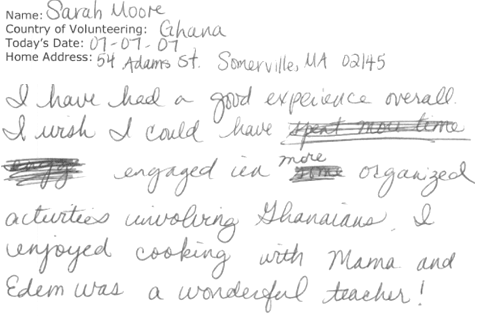 Name: Sarah Moore
Country of Volunteering: Ghana
Today's Date: 07-07-07
Home Address: 54 Adams St. Somerville, MA 02145
I have had a good experience overall.
I wish I could have spent more time
engaged in more some organized
activities involving Ghanaians. I
enjoyed cooking with Mama and
Edem was a wonderful teacher!